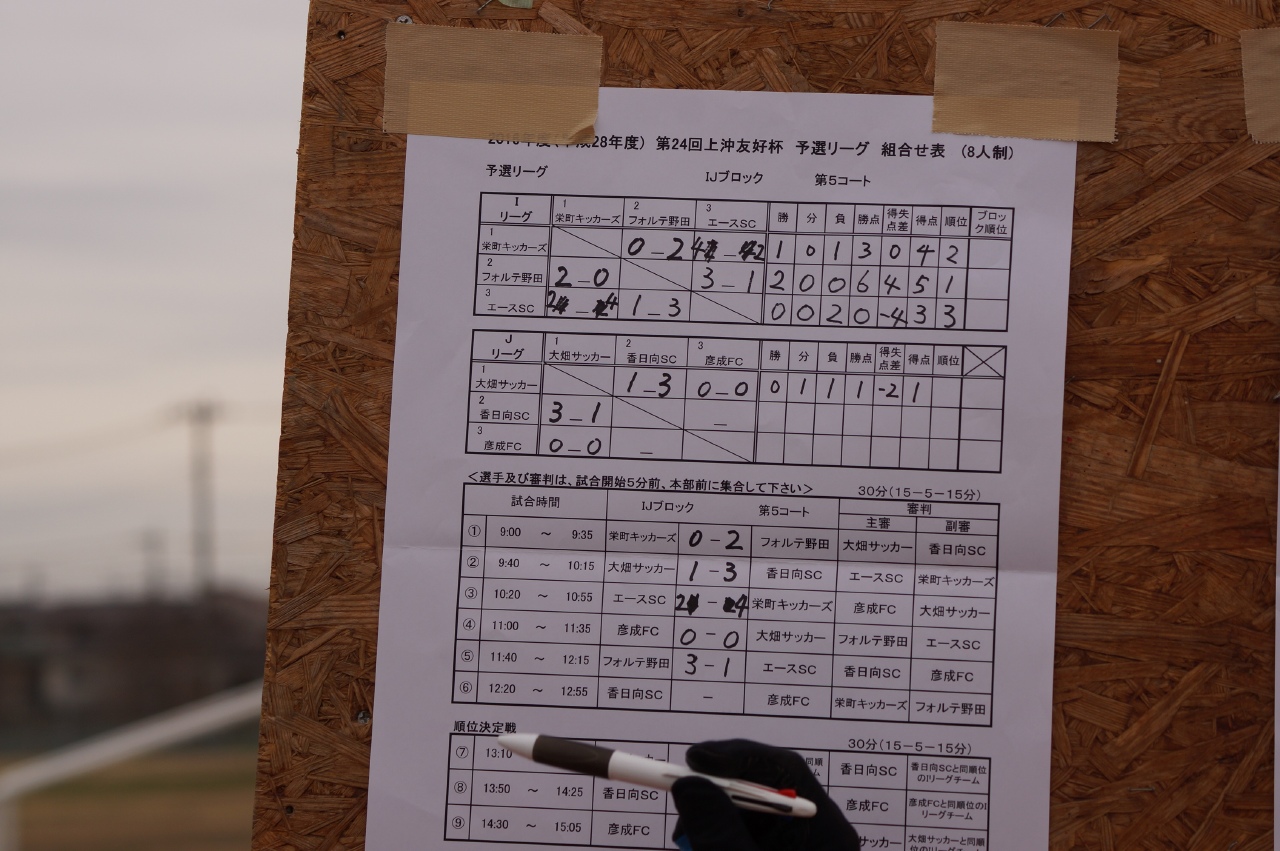 28年度） 第24回上沖友好杯 予選リーグ 組合せ表 （8人制）
予選リーグ IJブロック 第5コート
I リーグ 1 栄町キッカーズ 2 フォルテ野田 3 エースSC 勝 分 負 勝点 得失点差 得点 順位 ブロック順位
1 栄町キッカーズ 0-2 4-2 1 0 1 3 0 4 2
2 フォルテ野田 2-0 3-1 2 0 0 6 4 5 1
3 エースSC 2-4 1-3 0 0 2 0 -4 3 3
J リーグ 1 大畑サッカー 2 香日向SC 3 彦成FC 勝 分 負 勝点 得失点差 得点 順位
1 大畑サッカー 1-3 0-0 0 1 1 1 -2 1
2 香日向SC 3-1 －
3 彦成FC 0-0 －
＜選手及び審判は、試合開始5分前、本部前に集合して下さい＞ 30分（15－5－15分）
試合時間 IJブロック 第5コート 審判
主審 副審
① 9:00 ～ 9:35 栄町キッカーズ 0-2 フォルテ野田 大畑サッカー 香日向SC
② 9:40 ～ 10:15 大畑サッカー 1-3 香日向SC エースSC 栄町キッカーズ
③ 10:20 ～ 10:55 エースSC 2-4 栄町キッカーズ 彦成FC 大畑サッカー
④ 11:00 ～ 11:35 彦成FC 0-0 大畑サッカー フォルテ野田 エースSC
⑤ 11:40 ～ 12:15 フォルテ野田 3-1 エースSC 香日向SC 彦成FC
⑥ 12:20 ～ 12:55 香日向SC － 彦成FC 栄町キッカーズ フォルテ野田
順位決定戦 30分（15－5－15分）
⑦ 13:10 香日向SC 香日向SCと同順位のIリーグチーム
⑧ 13:50 ～ 14:25 香日向SC 彦成FC 彦成FCと同順位のIリーグチーム
⑨ 14:30 ～ 15:05 彦成FC サッカー 大畑サッカーと同順位のIリーグチーム